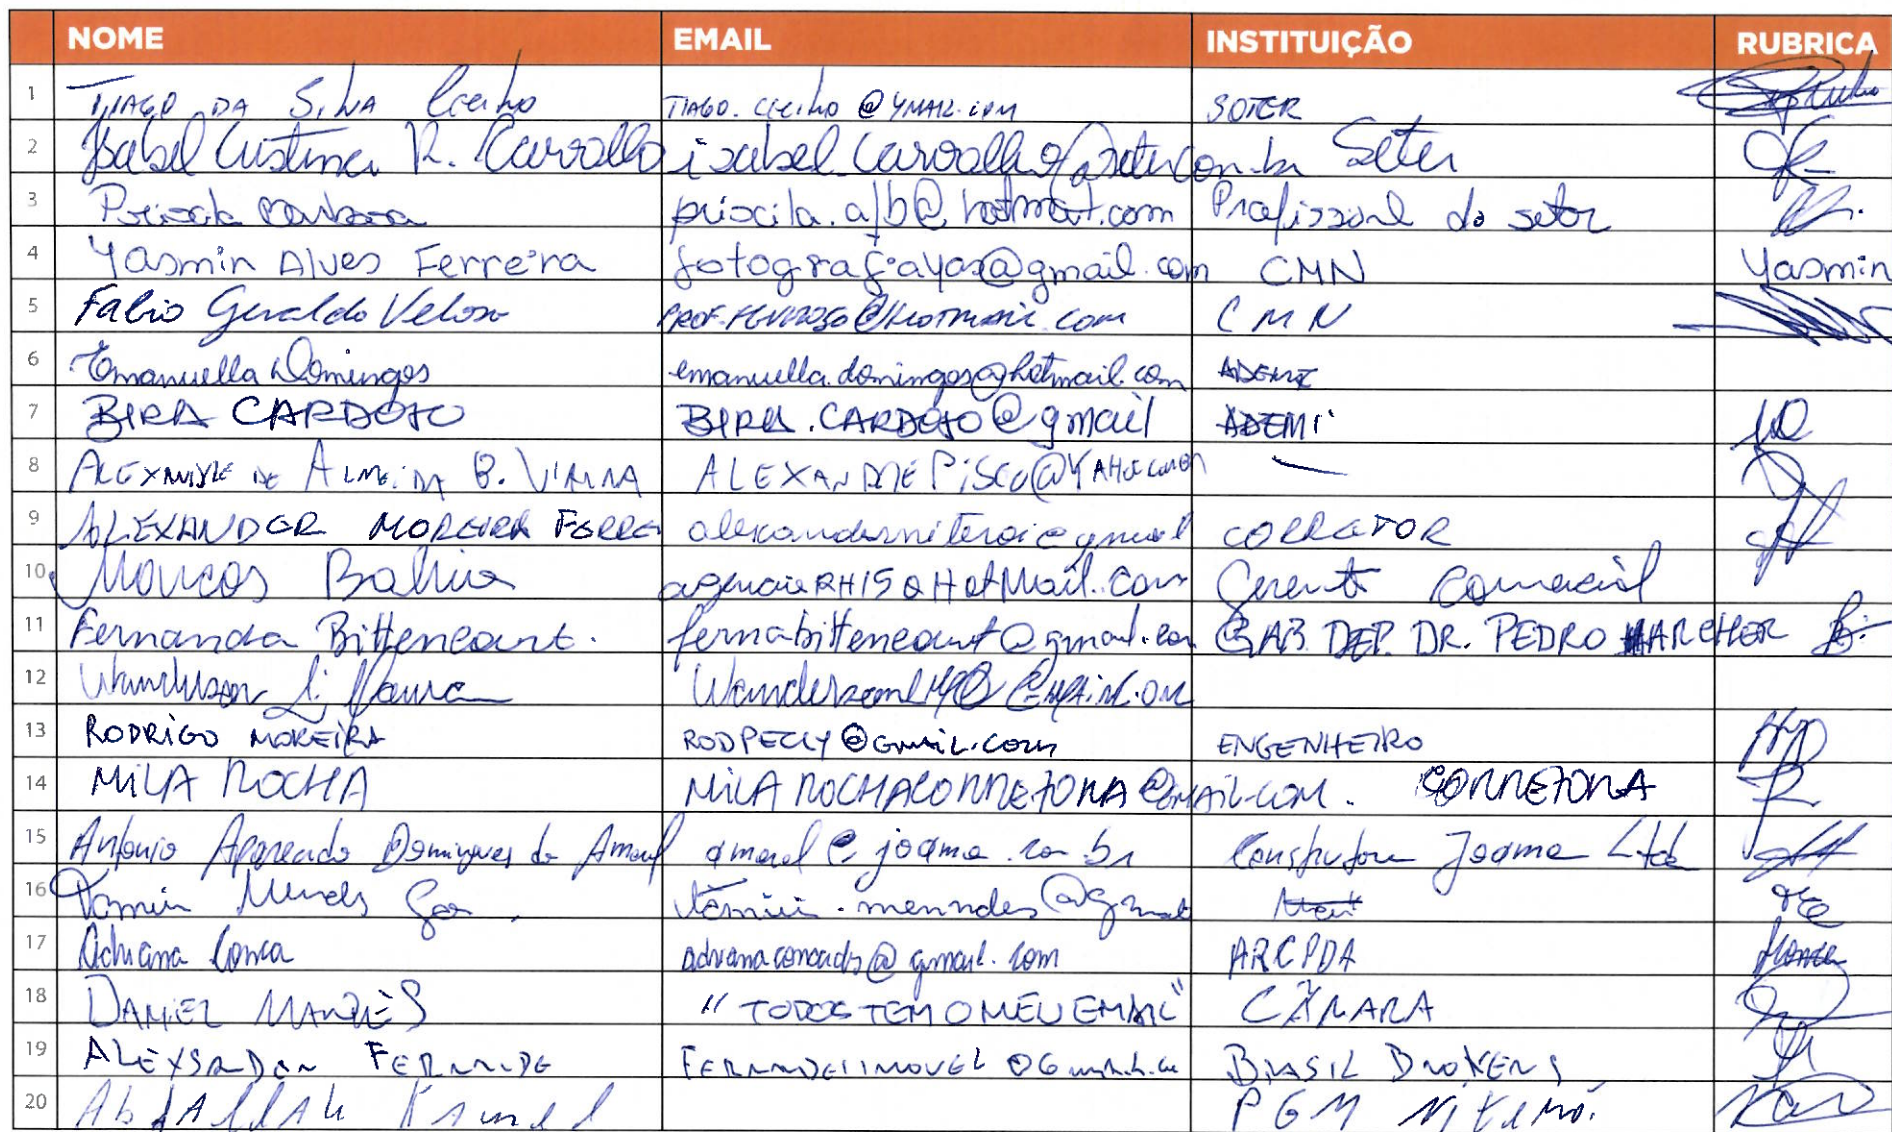 NOME EMAIL INSTITUIÇÃO RUBRICA
1 TIAGO DA SILVA Coelho TIAGO.COELHO@YMAIL.COM SOTER
2 Isabel Cristina R. Carvalho isabel.carvalho@soter.com.br Soter
3 Priscila Barbosa priscila.afb@hotmail.com Profissional do setor
4 Yasmin Alves Ferreira fotografiayas@gmail.com CMN Yasmin
5 Fabio Geraldo Veloso CMN
6 Emanuella Domingos emanuella.domingos@hotmail.com ADEMI
7 BIRA CARDOSO BIRA.CARDOSO@gmail ADEMI
8 ALEXANDRE DE ALMEIDA B. VIANNA
9 ALEXANDER MOREIRA FERREI alexanderniteroi@gmail CORRETOR
10 Marcos Bahia agenciaRH15@HotMail.com Gerente Comercial
11 Fernanda Bittencourt. fernabittencourt@gmail.com GAB. DEP. DR. PEDRO ARCHER
12
13 RODRIGO MOREIRA RODPECLY@GMAIL.COM ENGENHEIRO
14 MILA ROCHA MILAROCHACORRETORA@GMAIL.COM. CORRETORA
15 Antonio Aparecido Domingues do Amaral amaral@joama.com.br Construtora Joama Ltda
16
17 Adriana Conca ARCPDA
18 DANIEL MARQUES "TODOS TEM O MEU EMAIL" CÂMARA
19 ALEXSANDRO FERNANDE BRASIL BROKERS
20 Abdallah Kamel PGM Niterói.